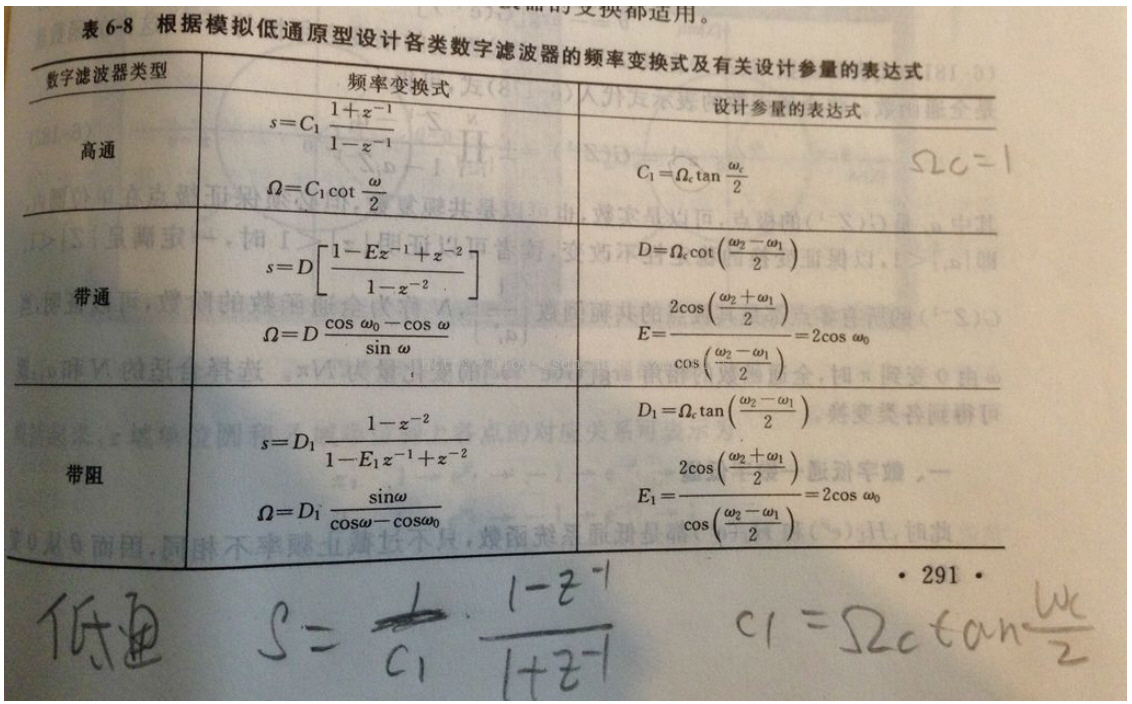 的变换都适用。
表 6-8 根据模拟低通原型设计各类数字滤波器的频率变换式及有关设计参量的表达式
数字滤波器类型 频率变换式 设计参量的表达式
高通 s=C₁ (1+z⁻¹)/(1-z⁻¹)
Ω=C₁ cot ω/2
C₁=Ω_c tan ω_c/2 Ωc=1
带通 s=D[(1-Ez⁻¹+z⁻²)/(1-z⁻²)]
Ω=D (cos ω₀-cos ω)/(sin ω)
D=Ω_c cot((ω₂-ω₁)/2)
E=2cos((ω₂+ω₁)/2)/cos((ω₂-ω₁)/2)=2cos ω₀
带阻 s=D₁ (1-z⁻²)/(1-E₁z⁻¹+z⁻²)
Ω=D₁ sinω/(cosω-cosω₀)
D₁=Ω_c tan((ω₂-ω₁)/2)
E₁=2cos((ω₂+ω₁)/2)/cos((ω₂-ω₁)/2)=2cos ω₀
· 291 ·
低通 S= 1/C1 · (1-z⁻¹)/(1+z⁻¹) C1=Ωc tan ωc/2